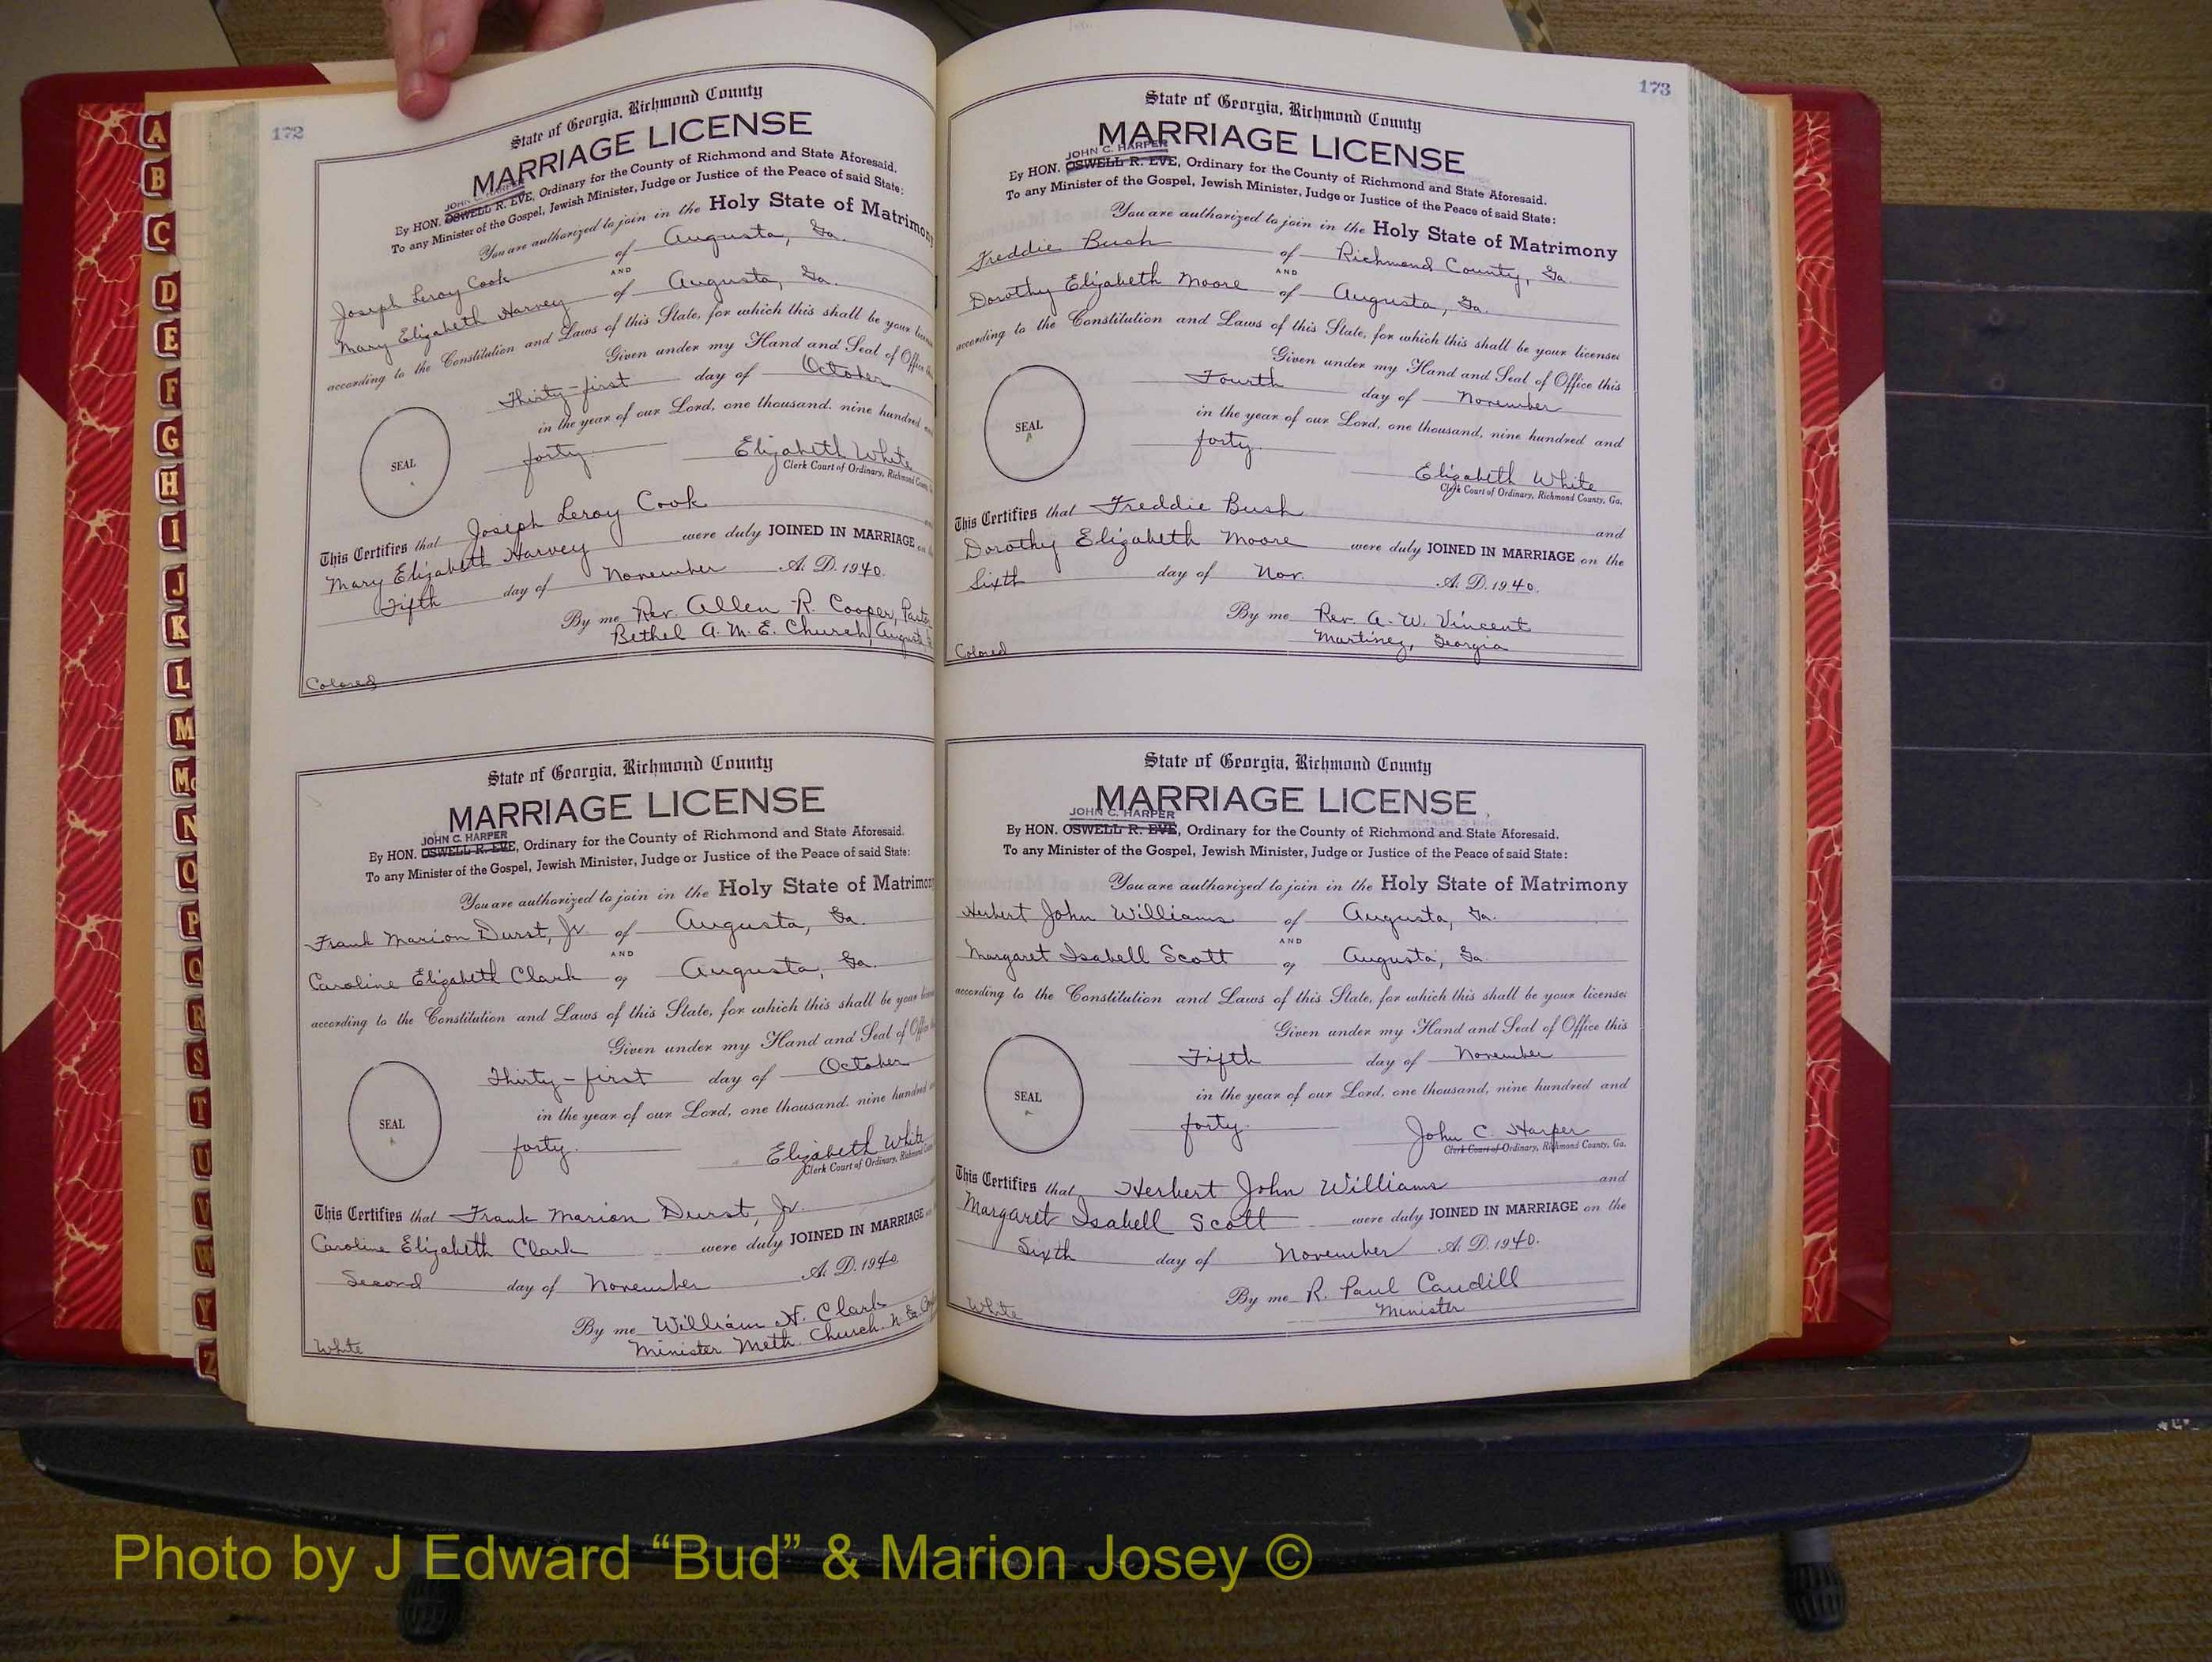 A
B
C
D
E
F
G
H
I
J
K
L
M
Mc
N
O
P
Q
R
S
T
U
V
W
Y
Z
172
State of Georgia, Richmond County
MARRIAGE LICENSE
JOHN C. HARPER
By HON. OSWELL R. EVE, Ordinary for the County of Richmond and State Aforesaid.
To any Minister of the Gospel, Jewish Minister, Judge or Justice of the Peace of said State:
You are authorized to join in the Holy State of Matrimony
Joseph Leroy Cook of Augusta, Ga.
AND
Mary Elizabeth Harvey of Augusta, Ga.
according to the Constitution and Laws of this State, for which this shall be your
Given under my Hand and Seal of Office
Thirty-first day of October
in the year of our Lord, one thousand, nine hundred
SEAL
forty. Elizabeth White
Clerk Court of Ordinary, Richmond
This Certifies that Joseph Leroy Cook
Mary Elizabeth Harvey were duly JOINED IN MARRIAGE
Fifth day of November A. D. 1940.
By me Rev. Allen R. Cooper,
Bethel A. M. E. Church, Augusta
Colored
State of Georgia, Richmond County
MARRIAGE LICENSE
JOHN C. HARPER
By HON. OSWELL R. EVE, Ordinary for the County of Richmond and State Aforesaid.
To any Minister of the Gospel, Jewish Minister, Judge or Justice of the Peace of said State:
You are authorized to join in the Holy State of
Frank Marion Durst, Jr. of Augusta, Ga.
AND
Caroline Elizabeth Clark of Augusta, Ga.
according to the Constitution and Laws of this State, for which this shall be your
Given under my Hand and Seal of
Thirty-first day of October
in the year of our Lord, one thousand, nine hundred
SEAL
forty. Elizabeth White
Clerk Court of Ordinary, Richmond
This Certifies that Frank Marion Durst, Jr.
Caroline Elizabeth Clark were duly JOINED IN MARRIAGE
Second day of November A. D. 1940.
By me William H. Clark
Minister Meth. Church.
White
173
State of Georgia, Richmond County
MARRIAGE LICENSE
JOHN C. HARPER
By HON. OSWELL R. EVE, Ordinary for the County of Richmond and State Aforesaid.
To any Minister of the Gospel, Jewish Minister, Judge or Justice of the Peace of said State:
You are authorized to join in the Holy State of Matrimony
Freddie Bush of Richmond County, Ga.
AND
Dorothy Elizabeth Moore of Augusta, Ga.
according to the Constitution and Laws of this State, for which this shall be your license:
Given under my Hand and Seal of Office this
Fourth day of November
in the year of our Lord, one thousand, nine hundred and
SEAL
forty. Elizabeth White
Clerk Court of Ordinary, Richmond County, Ga.
This Certifies that Freddie Bush and
Dorothy Elizabeth Moore were duly JOINED IN MARRIAGE on the
Sixth day of Nov. A. D. 1940.
By me Rev. A. W. Vincent
Martinez, Georgia
Colored
State of Georgia, Richmond County
MARRIAGE LICENSE
JOHN C. HARPER
By HON. OSWELL R. EVE, Ordinary for the County of Richmond and State Aforesaid.
To any Minister of the Gospel, Jewish Minister, Judge or Justice of the Peace of said State:
You are authorized to join in the Holy State of Matrimony
Herbert John Williams of Augusta, Ga.
AND
Margaret Isabell Scott of Augusta, Ga.
according to the Constitution and Laws of this State, for which this shall be your license:
Given under my Hand and Seal of Office this
Fifth day of November
in the year of our Lord, one thousand, nine hundred and
SEAL
forty. John C. Harper
Clerk Court of Ordinary, Richmond County, Ga.
This Certifies that Herbert John Williams and
Margaret Isabell Scott were duly JOINED IN MARRIAGE on the
Sixth day of November A. D. 1940.
By me R. Paul Caudill
Minister
White
Photo by J Edward “Bud” & Marion Josey ©